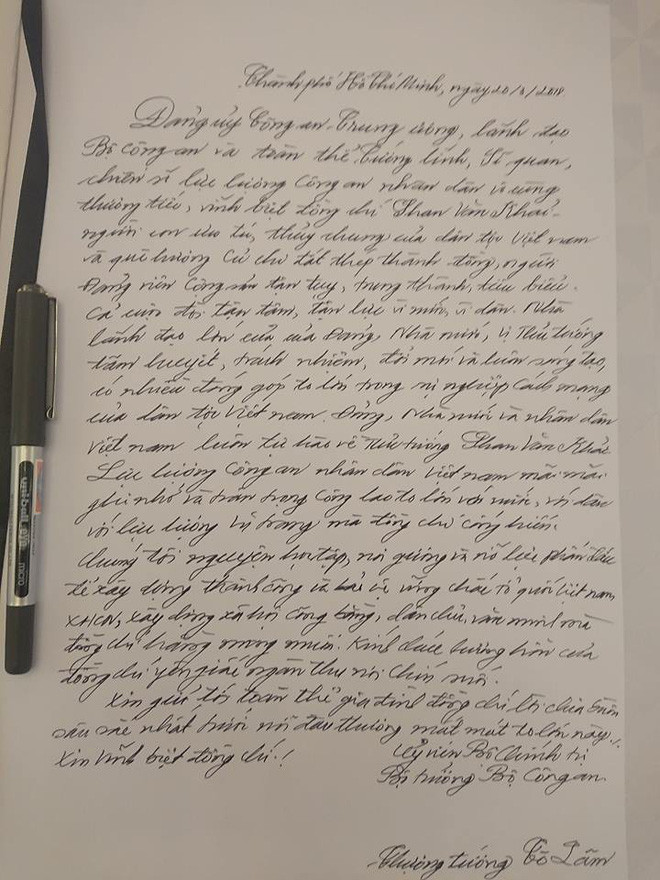 Thành phố Hồ Chí Minh, ngày 20/3/2018
Đảng ủy Công an Trung ương, lãnh đạo
Bộ Công an và toàn thể tướng lĩnh, Sĩ quan,
chiến sĩ lực lượng Công an nhân dân vô cùng
thương tiếc, vĩnh biệt đồng chí Phan Văn Khải -
người con ưu tú, thủy chung của dân tộc Việt nam
và quê hương Củ chi đất thép thành đồng, người
Đảng viên Cộng sản tận tụy, trung thành, tiêu biểu.
Cả cuộc đời tận tâm, tận lực vì nước, vì dân. Nhà
lãnh đạo lớn của của Đảng, Nhà nước, vị Thủ tướng
tâm huyết, trách nhiệm, đổi mới và luôn sáng tạo,
có nhiều đóng góp to lớn trong sự nghiệp Cách mạng
của dân tộc Việt nam. Đảng, Nhà nước và nhân dân
Việt nam luôn tự hào về Thủ tướng Phan Văn Khải.
Lực lượng Công an nhân dân Việt nam mãi mãi
ghi nhớ và trân trọng Công lao to lớn với nước, với dân
với lực lượng vũ trang mà đồng chí cống hiến.
Chúng tôi nguyện học tập, noi gương và nỗ lực phấn đấu
để xây dựng thành công và bảo vệ vững chắc Tổ quốc Việt nam
XHCN, xây dựng xã hội công bằng, dân chủ, văn minh mà
đồng chí hằng mong muốn. Kính chúc hương hồn của
đồng chí yên giấc ngàn thu nơi Chín suối.
Xin gửi tới toàn thể gia đình đồng chí lời chia buồn
sâu sắc nhất trước nỗi đau thương mất mát to lớn này!
Xin vĩnh biệt đồng chí!
Ủy viên Bộ Chính trị
Bộ trưởng Bộ Công an
Thượng tướng Tô Lâm
uni-ball eye
micro